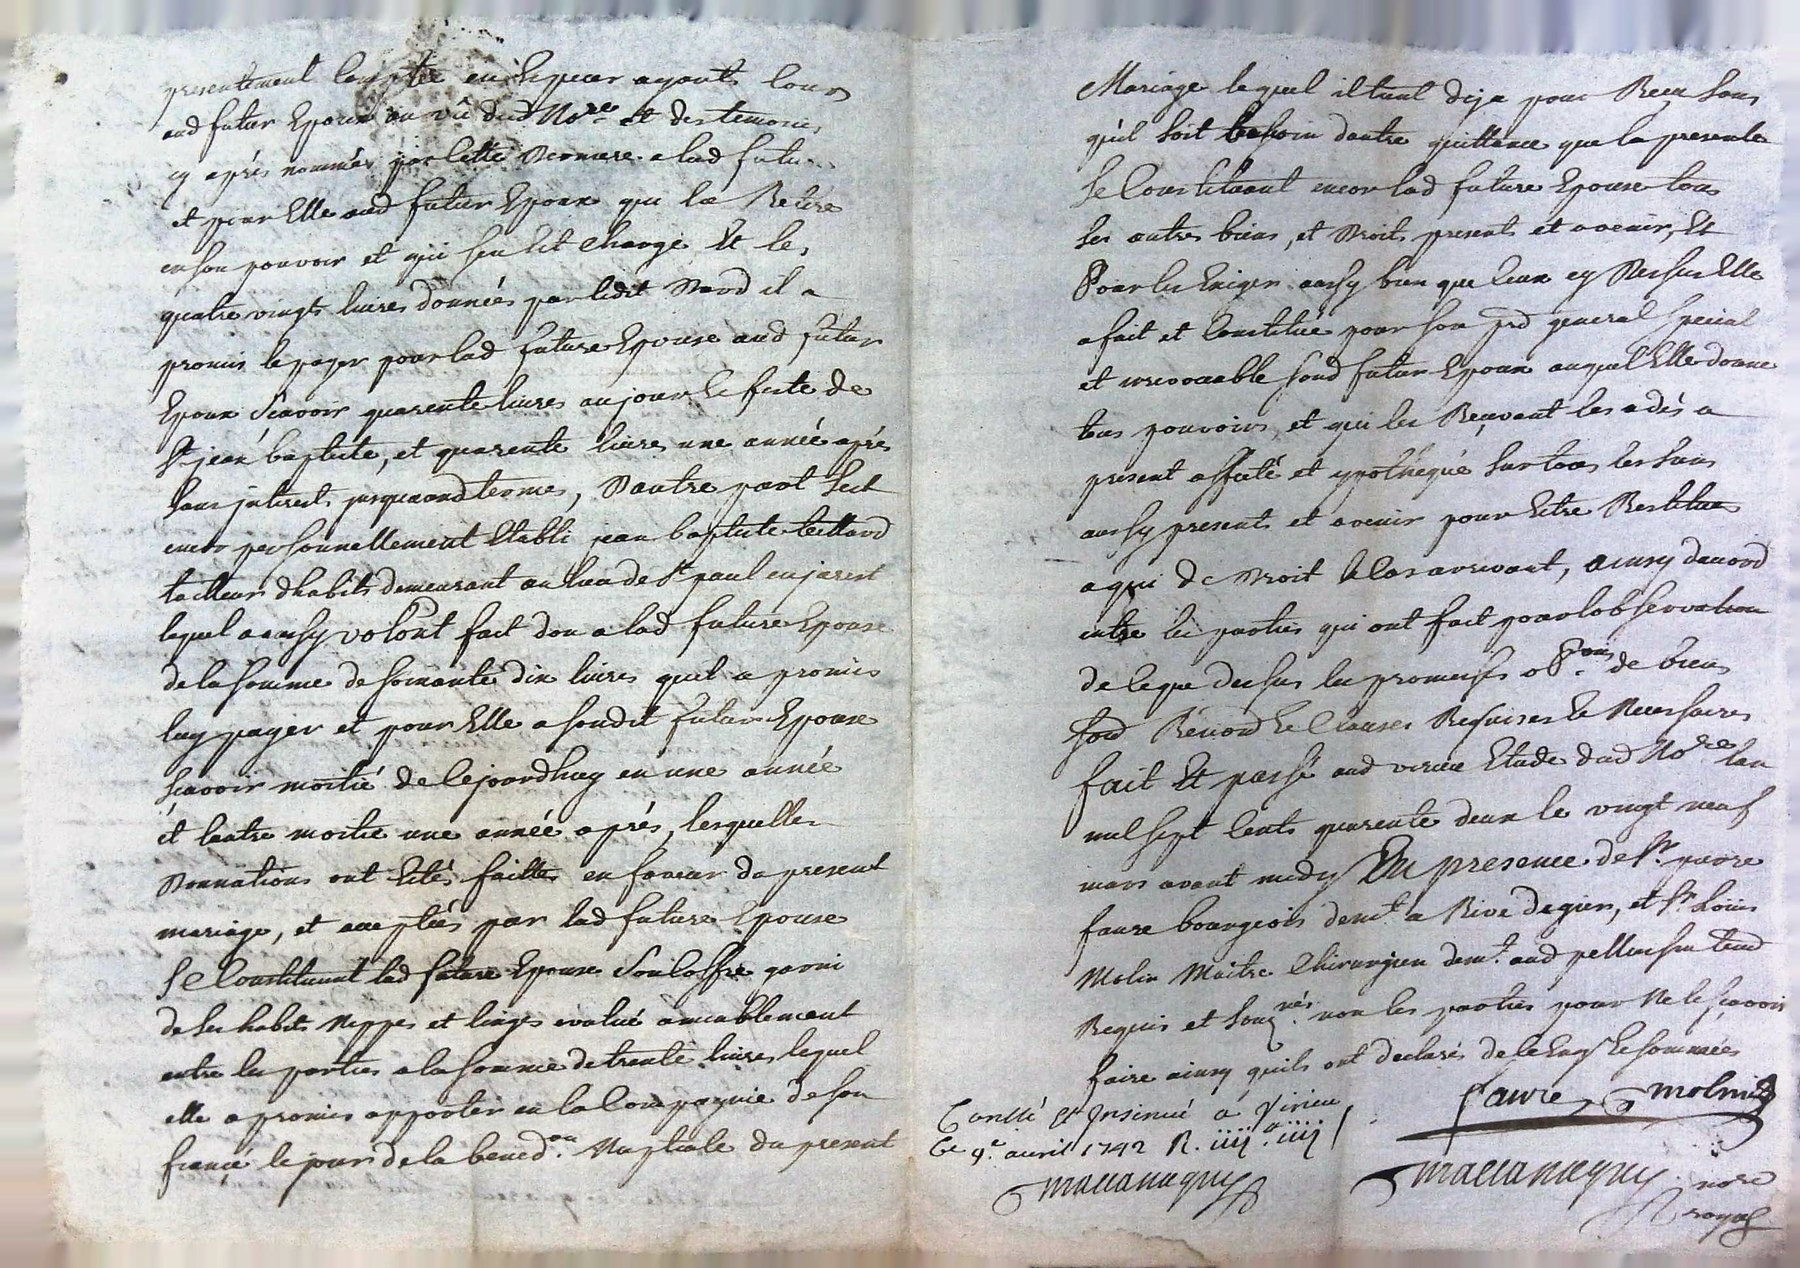 presentement comptée en especes ayants cours
aud futur Epoux au vû dud No.re et des temoins
cy aprés nommés par cette derniere a lad futu
et pour Elle aud futur Epoux qui la Retire
en son pouvoir et qui sen est chargé Et les
quatre vingts livres données par ledit Nard il a
promis le payer pour lad future Epouse aud futur
Epoux Scavoir quarente livres au jour & feste de
St jean baptiste, et quarente livres une année aprés
sans jnterest jusquauxd termes, Dautre part sest
encor personnellement Etabli jean baptiste teillard
tailleur dhabits demeurant au lieu de St paul en jarest
lequel a aussy volont fait don a lad future Epouse
de la somme de soixante dix livres quil a promis
luy payer et pour Elle a sondit futur Epoux
scavoir moitié de cejourdhuy en une année
et lautre moitié une année aprés, lesquelles
Donnations ont Eté faittes en faveur du present
mariage, et acceptées par lad future Epouse
Se Constituant lad future Epouse Son coffre garni
de ses habits Nippes et linges evalué amiablement
entre les parties a la somme de trente livres lequel
elle a promis apporter en la Compagnie de son
fiancé le jour de la bened.on Nuptiale du present
Mariage lequel il tient deja pour Receu sans
quil soit besoin dautre quittance que la presente
Se Constituant encor lad future Epouse tous
ses autres biens, et Droits presents et avenir, Et
Pour les Exiger aussy bien que ceux cy Dessus Elle
a fait et Constitué pour son prd general special
et irrevocable sond futur Epoux auquel Elle donne
tous pouvoirs, et qui les Reçevant les a dés a
present assuré et ypothequé sur tous les siens
aussy presents et avenir pour Estre Restitués
a qui de Droit le cas arrivant, ainsy dacord
entre les parties qui ont fait pour lobservation
de ce que dessus les promesses ob.ons de biens
soud Renond & Clauses Requises & Necessaires
fait Et passé aud virieu Etude dud No.re lan
mil sept cents quarente deux le vingt neuf
mars avant midy En presence de Sr. pierre
faure bourgeois dem.t a Rive degier, et Sr Loüis
Molin Maitre Chirurgien dem.t aud pellussin temd
Requis et souz.nés non les parties pour Ne le sçavoir
faire ainsy quils ont declarés de ce Enq.s & sommées
faure molin
Conllé Et Insinué á Virieu
Ce 9.e avril 1742 R. iiij.# iiij s